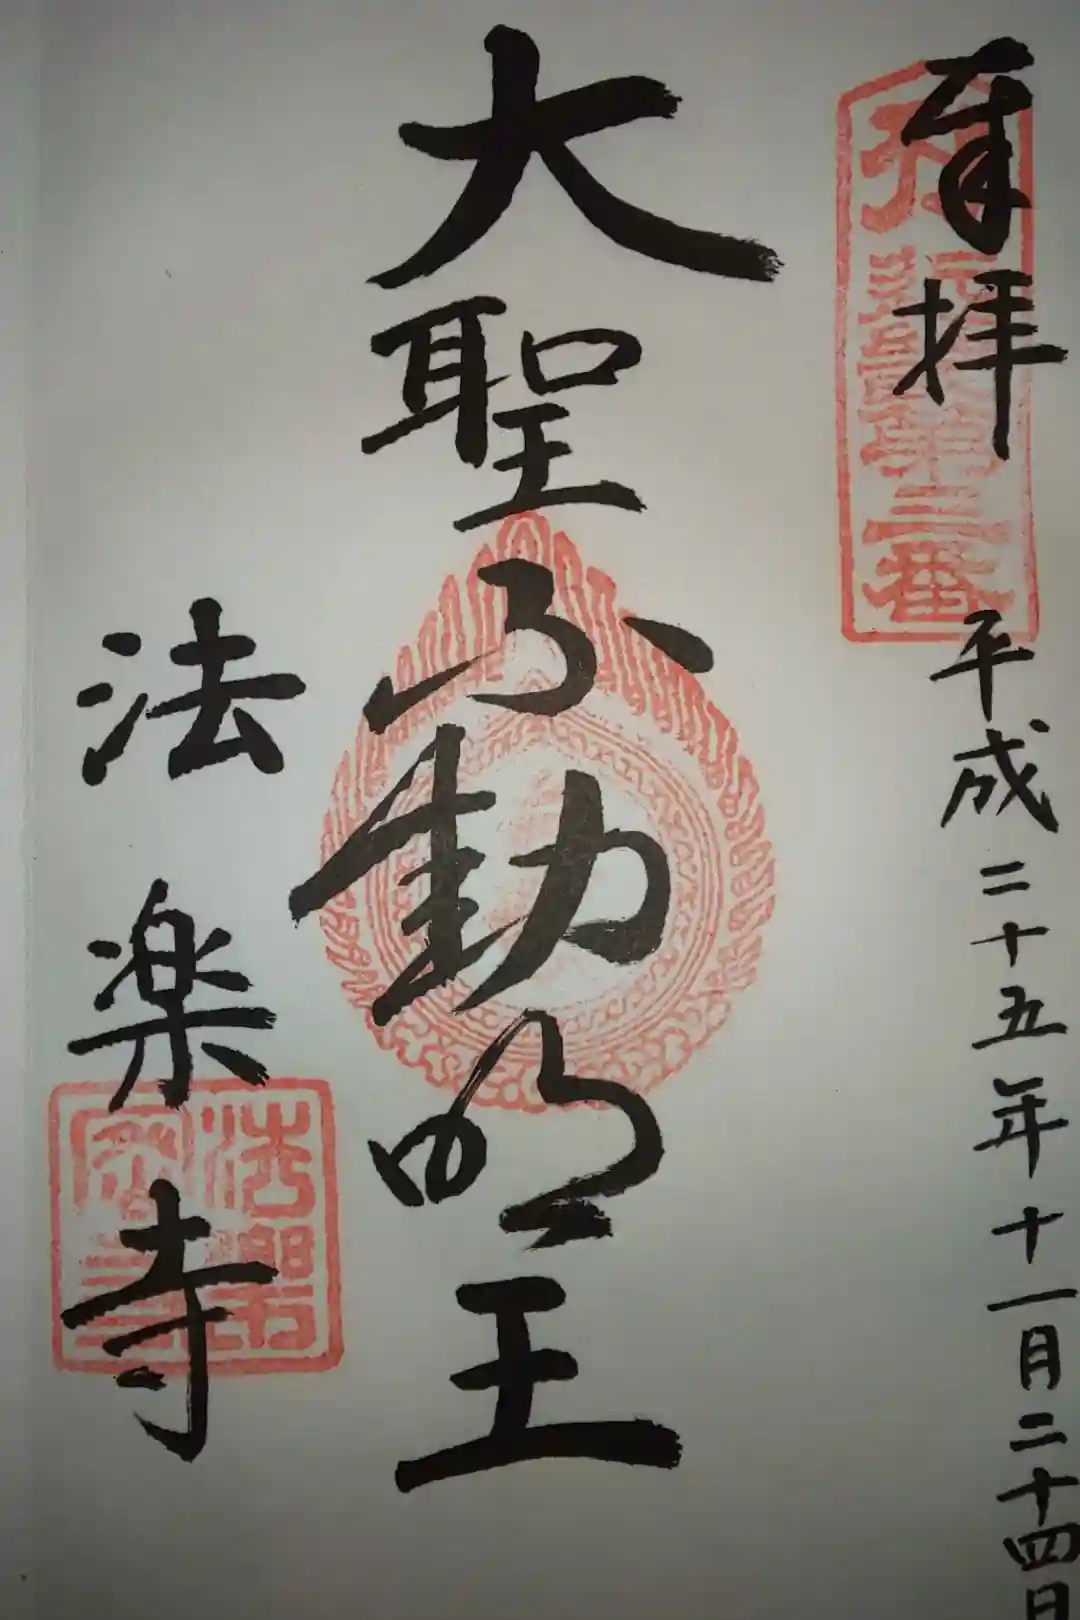 奉拝
平成二十五年十一月二十四日
大聖不動明王
法楽寺